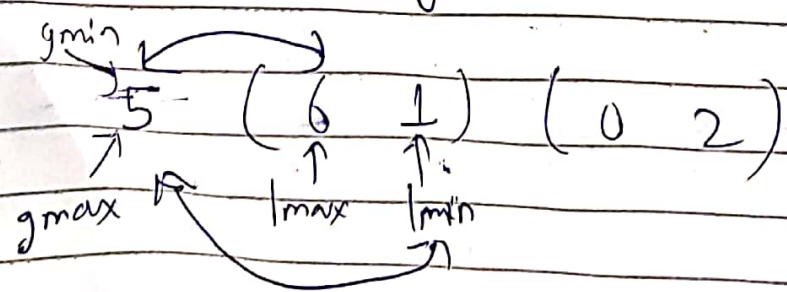 gmin
5 ( 6 1 ) ( 0 2 )
gmax lmax lmin